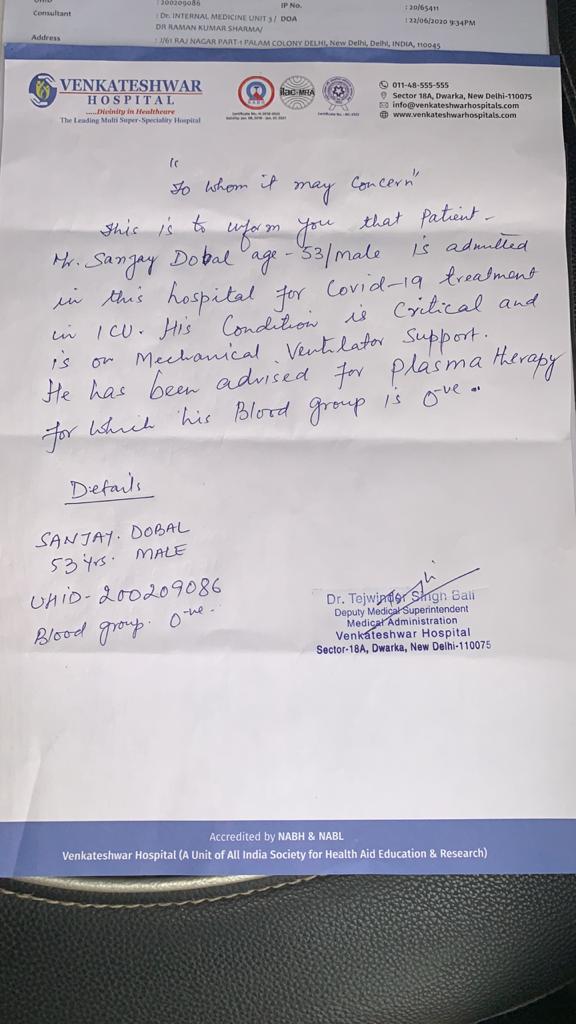 : 200209086 IP No. : 20/65411
Consultant : Dr. INTERNAL MEDICINE UNIT 3 / DOA : 22/06/2020 9:34PM
DR RAMAN KUMAR SHARMA/
Address : J/61 RAJ NAGAR PART-1 PALAM COLONY DELHI, New Delhi, Delhi, INDIA, 110045
VENKATESHWAR
HOSPITAL
.....Divinity in Healthcare
The Leading Multi Super-Speciality Hospital
ilac-MRA
011-48-555-555
Sector 18A, Dwarka, New Delhi-110075
info@venkateshwarhospitals.com
www.venkateshwarhospitals.com
"To whom it may Concern"
This is to inform you that Patient -
Mr. Sanjay Dobal age - 53/male is admitted
in this hospital for Covid-19 treatment
in ICU. His Condition is Critical and
is on Mechanical Ventilator Support.
He has been advised for plasma therapy
for which his Blood group is O-ve..
Details
SANJAY. DOBAL
53 yrs. MALE
UHID - 200209086
Blood group. O-ve.
Dr. Tejwinder Singh Bali
Deputy Medical Superintendent
Medical Administration
Venkateshwar Hospital
Sector-18A, Dwarka, New Delhi-110075
Accredited by NABH & NABL
Venkateshwar Hospital (A Unit of All India Society for Health Aid Education & Research)